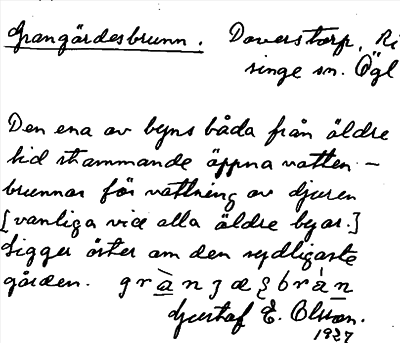 Grangärdesbrunn. Daverstorp, Ri
singe sn. Ögl
Den ena av byns båda från äldre
tid stammande öppna vatten-
brunnar för vattning av djuren
[vanliga vid alla äldre byar.]
Ligger öster om den sydligaste
gården. grànʒæʂbràn
Gustaf E. Olsson.
1927